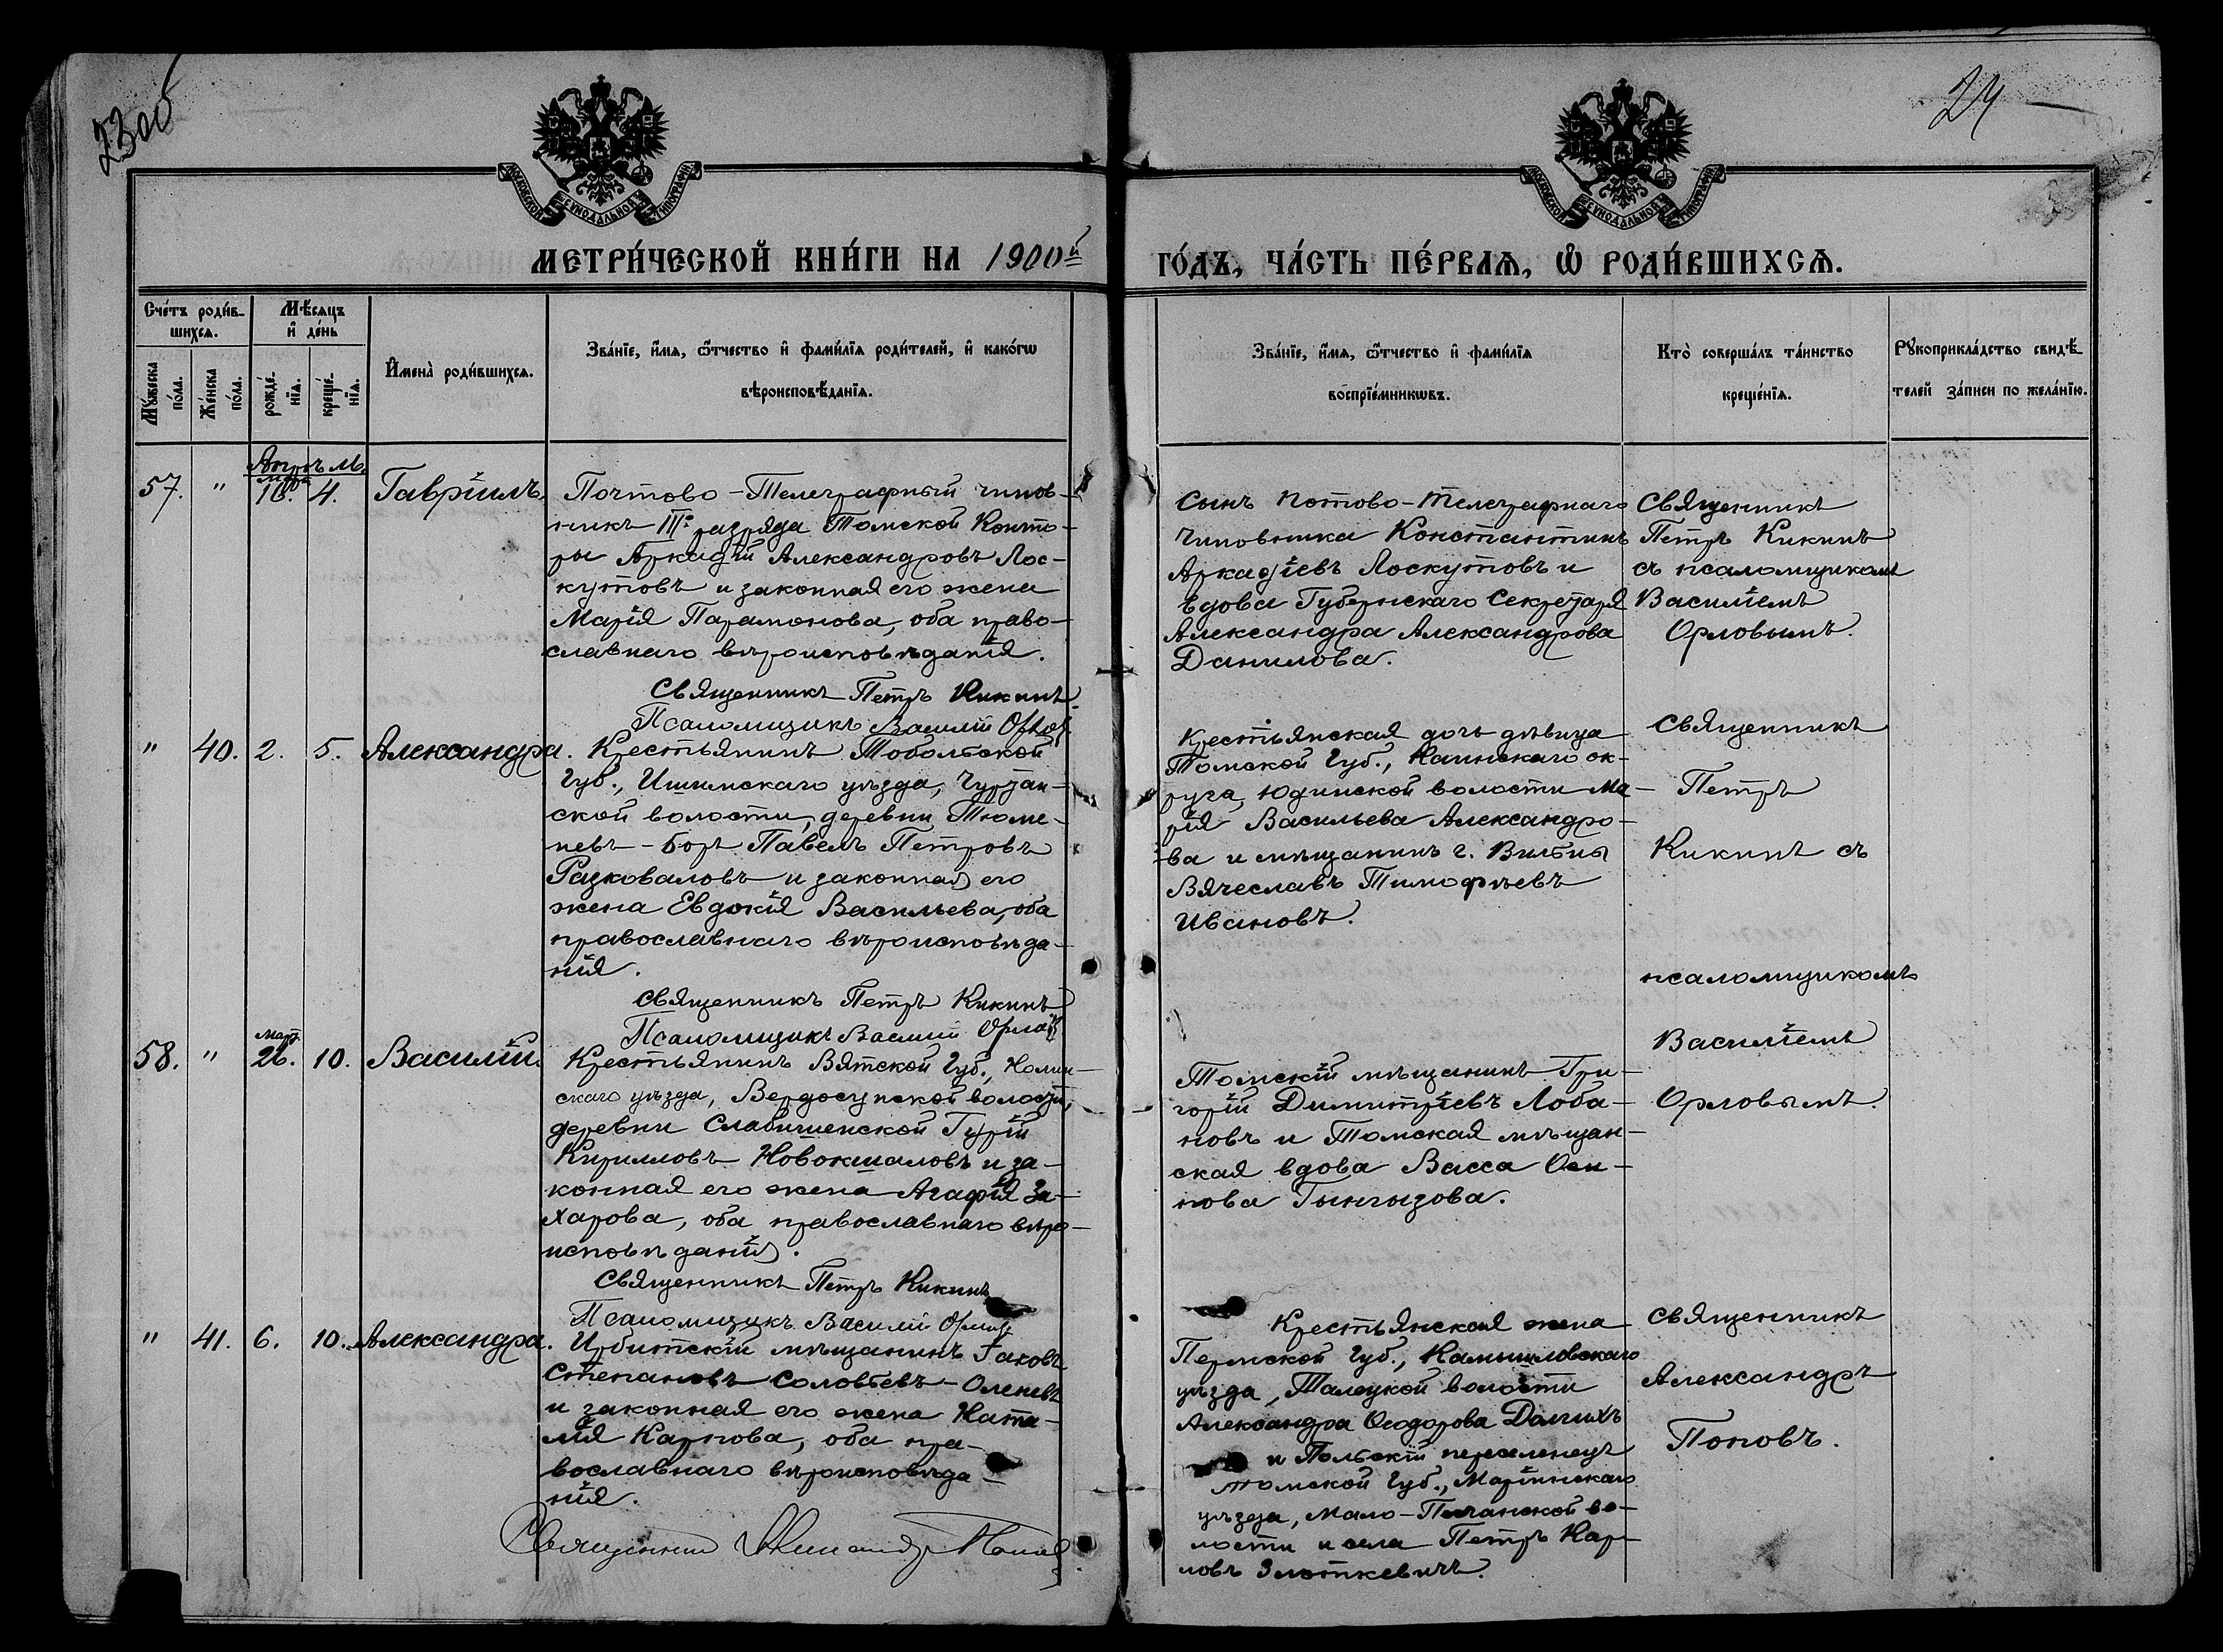 23об
24
МОСКОВСКОЙ СУНОДАЛЬНОЙ ТИПОГРАФІИ
МОСКОВСКОЙ СУНОДАЛЬНОЙ ТИПОГРАФІИ
МЕТРИ́ЧЕСКОЙ КНИ́ГИ НА 1900й
ГО́ДЪ, ЧА́СТЬ ПЕ́РВАѦ, Ѡ҆ РОДИ́ВШИХСѦ.
Сче́тъ роди́в-
шихсѧ.
Мѣ́сяцъ
и҆ де́нь
Мꙋ́жеска
по́ла.
Же́нска
по́ла.
рожде́-
нїѧ.
креще́-
нїѧ.
И҆мена̀ роди́вшихсѧ.
Зва́нїе, и҆́мѧ, ѻ҆́тчество и҆ фами́лїѧ роди́телей, и҆ како́гѡ
вѣроисповѣ́данїѧ.
Зва́нїе, и҆́мѧ, ѻ҆́тчество и҆ фами́лїѧ
воспрїе́мникѡвъ.
Кто̀ соверша́лъ та́инство
креще́нїѧ.
Рꙋкоприкла́дство свидѣ́-
телей за́писи по жела́нїю.
57. " Март 16. 4. Гавріилъ.
Почтово-Телеграфный чинов-
никъ IIIго разряда Томской Конто-
ры Аркадій Александровъ Лос-
кутовъ и законная его жена
Марія Парамонова, оба право-
славнаго вѣроисповѣданія.
Священникъ Петръ Кикинъ
Псаломщикъ Василій Орловъ
Сынъ потово-телеграфнаго
чиновника Константинъ
Аркадіевъ Лоскутовъ и
вдова Губернскаго Секретаря
Александра Александрова
Данилова.
Священникъ
Петръ Кикинъ
съ псаломщикомъ
Василіемъ
Орловымъ.
" 40. 2. 5. Александра.
Крестьянинъ Тобольской
Губ., Ишимскаго уѣзда, Чуртан-
ской волости, деревни Тюме-
невъ-Боръ Павелъ Петровъ
Разковаловъ и законная его
жена Евдокія Васильева, оба
православнаго вѣроисповѣда-
нія.
Священникъ Петръ Кикинъ
Псаломщикъ Василій Орловъ
Крестьянская дочь дѣвица
Томской Губ., Каинскаго ок-
руга, Юдинской волости Ма-
рія Васильева Александро-
ва и мѣщанинъ г. Вильны
Вячеславъ Тимофѣевъ
Ивановъ.
Священникъ
Петръ
Кикинъ съ
псаломщикомъ
Василіемъ
Орловымъ.
58. " Март. 26. 10. Василій.
Крестьянинъ Вятской Губ., Нолин-
скаго уѣзда, Вердосунской волости,
деревни Гурій
Кирилловъ Новокшаловъ и за-
конная его жена Агафія За-
харова, оба православнаго вѣро-
исповѣданія.
Священникъ Петръ Кикинъ
Псаломщикъ Василій Орловъ
Томскій мѣщанинъ Гри-
горій Димитріевъ Лоба-
новъ и Томская мѣщан-
ская вдова Васса Оси-
пова Тынгызова.
" 41. 6. 10. Александра.
Ирбитскій мѣщанинъ Іаковъ
Степановъ Соловьевъ-Оленевъ
и законная его жена Ната-
лія Карпова, оба пра-
вославнаго вѣроисповѣда-
нія.
Священникъ Александръ Поповъ
Крестьянская жена
Пермской Губ., Камышловскаго
уѣзда, Талецкой волости
Александра Ѳеодорова Долгихъ
и Польскій переселенецъ
Томской Губ., Маріинскаго
уѣзда, Мало-Песчанской во-
лости и села Петръ Кар-
ловъ Злоткевичъ.
Священникъ
Александръ
Поповъ.